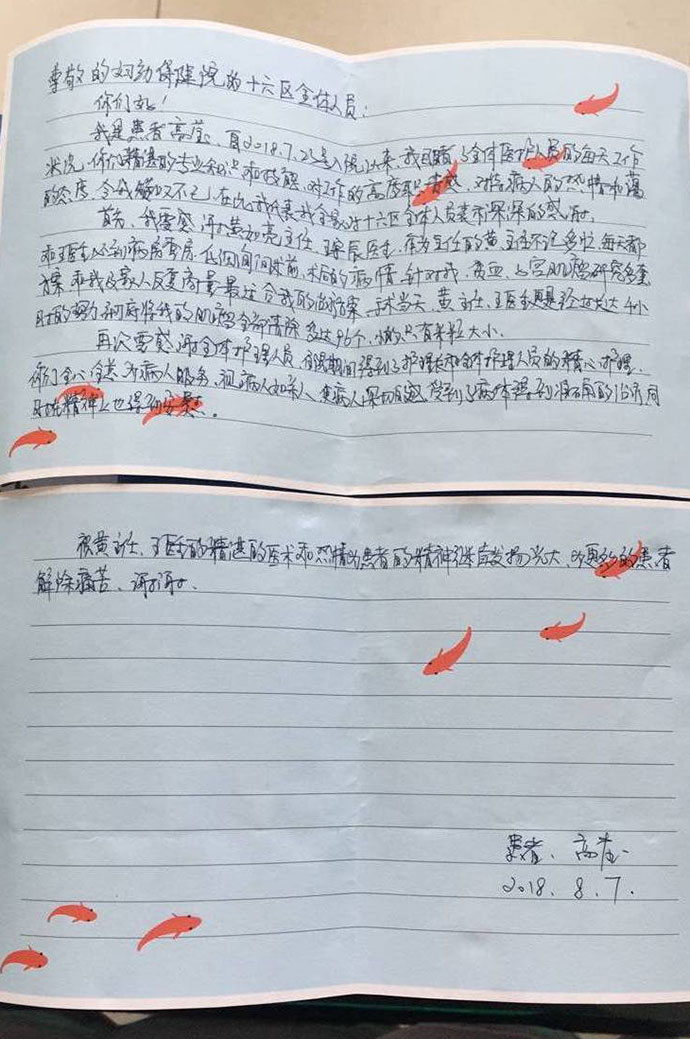 尊敬的妇幼保健院的十六区全体人员:
你们好!
我是患者高莹,自2018.7.23号入院以来,我目睹了全体医护人员的每天工作
状况,你们精湛的专业知识和技能,对工作的高度责任感,对待病人的热情和蔼
的态度,令我敬叹不已,在此我代表我全家对十六区全体人员表示深深的感谢。
首先,我要感谢黄如亮主任,王辰医生,作为主任的黄主任不论多忙每天都
和王医生到病房查房,住院期间术前、术后的病情,针对我,贫血,子宫肌瘤
方案和我及家人反复商量最适合我的治疗方案,手术当天,黄主任,王医生更是经过长达4小
时的努力,将我的肌瘤全部清除多达96个,小的只有米粒大小。
再次要感谢全体护理人员,住院期间得到了护理长和全体护理人员的精心护理,
你们全心全意为病人服务,视病人如亲人,使病人深切的感受到了病体得到治疗的同
时在精神上也得到安慰。
祝黄主任、王医生的精湛的医术和热情的患者的精神继续发扬光大,为更多的患者
解除痛苦、谢谢。
患者、高莹
2018.8.7.